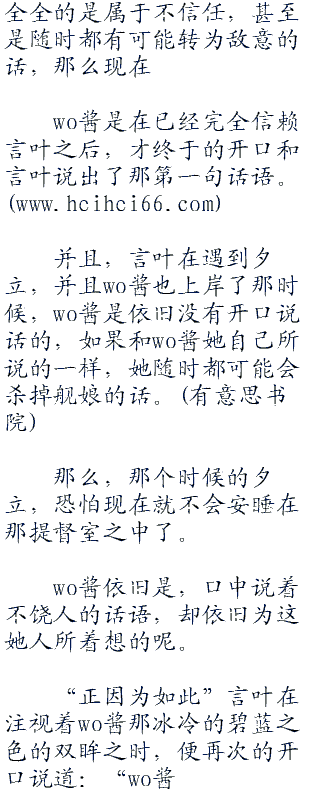 全全的是属于不信任，甚至
是随时都有可能转为敌意的
话，那么现在
wo酱是在已经完全信赖
言叶之后，才终于的开口和
言叶说出了那第一句话语。
(www.hcihci66.com)
并且，言叶在遇到夕
立，并且wo酱也上岸了那时
候，wo酱是依旧没有开口说
话的，如果和wo酱她自己所
说的一样，她随时都可能会
杀掉舰娘的话。(有意思书
院)
那么，那个时候的夕
立，恐怕现在就不会安睡在
那提督室之中了。
wo酱依旧是，口中说着
不饶人的话语，却依旧为这
她人所着想的呢。
“正因为如此”言叶在
注视着wo酱那冰冷的碧蓝之
色的双眸之时，便再次的开
口说道：“wo酱